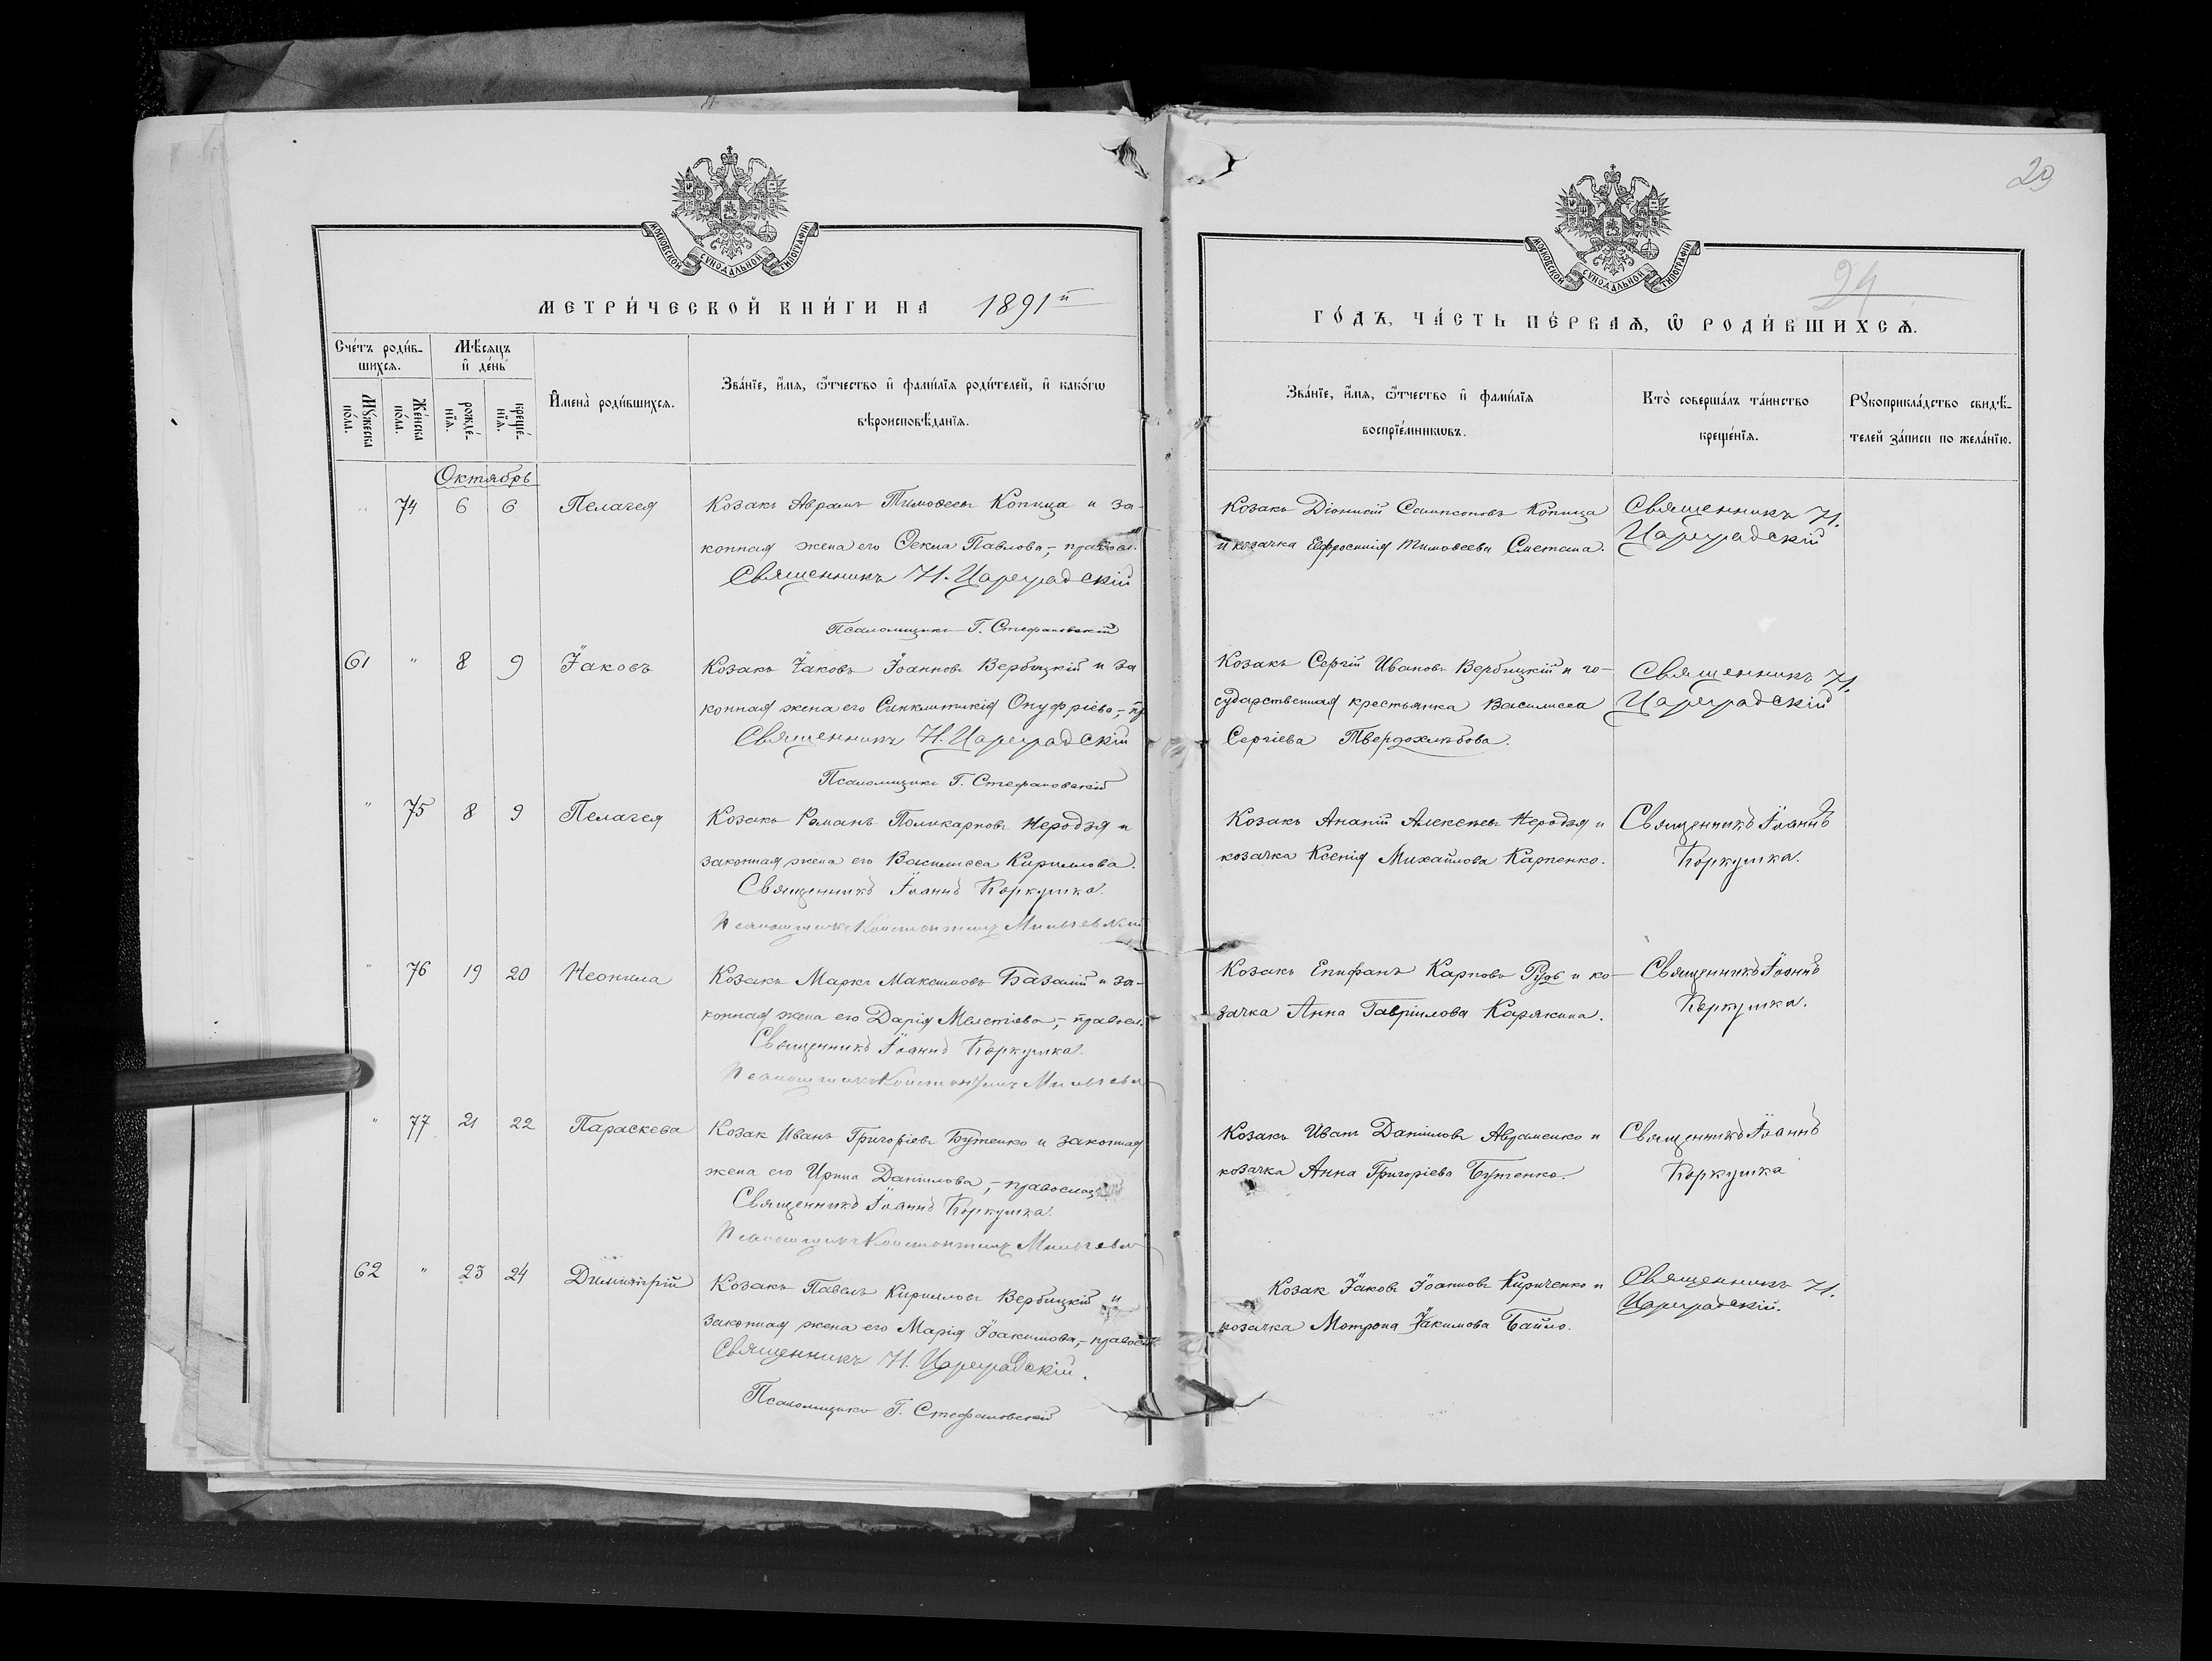 29
МОСКОВСКОЙ СУНОДАЛЬНОЙ ТИПОГРАФІИ
МОСКОВСКОЙ СУНОДАЛЬНОЙ ТИПОГРАФІИ
МЕТРИ́ЧЕСКОЙ КНИ́ГИ НА 1891й
24
ГО́ДЪ, ЧА́СТЬ ПЕ́РВАѦ, Ѡ РОДИ́ВШИХСѦ.
Сче́тъ роди́в-
шихсѧ.
Мꙋ́жеска
по́ла.
Же́нска
по́ла.
Мѣ́сѧцъ
и҆ де́нь
рожде́-
нїѧ.
креще́-
нїѧ.
И҆мена̀ роди́вшихсѧ.
Зва́нїе, и҆́мѧ, ѻ҆́тчество и҆ фами́лїѧ роди́телей, и҆ како́гѡ
вѣроисповѣ́данїѧ.
Зва́нїе, и҆́мѧ, ѻ҆́тчество и҆ фами́лїѧ
воспрїе́мникѡвъ.
Кто̀ соверша́лъ та́инство
креще́нїѧ.
Рꙋкоприкла́дство свидѣ́-
телей за́писи по жела́нїю.
Октябрь
" 74 6 6 Пелагея
Козакъ Аврамъ Тимоѳеевъ Копица и за-
конная жена его Ѳекла Павлова,- правосл.
Священникъ Н. Цареградскій
Псаломщикъ Г. Стефановскій
Козакъ Діонисій Сампсоновъ Копица
и козачка Евфросинія Тимоѳеева Сметана.
Священникъ Н.
Цареградскій
61 " 8 9 Іаковъ
Козакъ Іаковъ Іоанновъ Вербицкій и за
конная жена его Синклитикія Онуфріева,- пр
Священникъ Н. Цареградскій
Псаломщикъ Г. Стефановскій
Козакъ Сергій Ивановъ Вербицкій и го-
сударственная крестьянка Василисса
Сергіева Твердохлѣбова.
Священникъ Н.
Цареградскій
" 75 8 9 Пелагея
Козакъ Романъ Поликарповъ Неродзя и
законная жена его Василисса Кириллова.
Священникъ Іоаннъ Коркушка.
Псаломщикъ Константинъ
Козакъ Ананій Алексѣевъ Неродзя и
козачка Ксенія Михайлова Карпенко.
Священникъ Іоаннъ
Коркушка.
" 76 19 20 Неонила
Козакъ Маркъ Максимовъ Базалій и за-
конная жена его Дарія Мелетіева,- правосл.
Священникъ Іоаннъ Коркушка.
Псаломщикъ Константинъ
Козакъ Епифанъ Карповъ Рудь и ко-
зачка Анна Гавріилова Карякина.
Священникъ Іоаннъ
Коркушка.
" 77 21 22 Параскева
Козак Иванъ Григоріевъ Бутенко и законная
жена его Ирина Даніилова,- правосла
Священникъ Іоаннъ Коркушка.
Псаломщикъ Константинъ
Козакъ Иванъ Даніиловъ Авраменко и
козачка Анна Григоріева Бутенко.
Священникъ Іоаннъ
Коркушка
62 " 23 24 Димитрій
Козакъ Павелъ Кирилловъ Вербицкій и
законная жена его Марія Іоакимова,- правосл
Священникъ Н. Цареградскій.
Псаломщикъ Г. Стефановскій
Козак Іаковъ Іоанновъ Кириченко и
козачка Мотрона Іакимова Байло.
Священникъ Н.
Цареградскій.